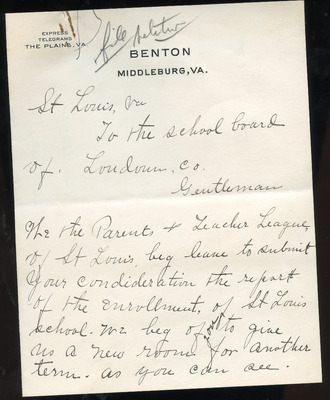 EXPRESS
TELEGRAMS
THE PLAINS, VA.
file
BENTON
MIDDLEBURG, VA.
St Louis, Va
To the school board
of. Loudoun, co.
Gentleman
We the Parents & Teacher League,
of St Louis, beg leave to submit
Your condideration the report
of the enrollment, of St Louis
school. We beg of you to give
us a new room for another
term. as you can see.